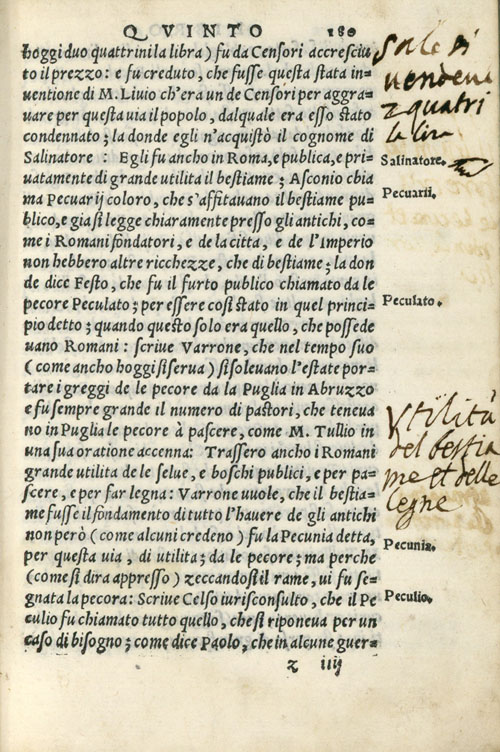 QVINTO 180
hoggi duo quattrini la libra) fu da Censori accresciu
to il prezzo: e fu creduto, che fusse questa stata in=
uentione di M. Liuio ch'era un de Censori per aggra=
uare per questa uia il popolo, dalquale era esso stato
condennato; la donde egli n'acquistò il cognome di
Salinatore: Egli fu ancho in Roma, e publica, e pri=
uatamente di grande utilita il bestiame; Asconio chia
ma Pecuarij coloro, che s'affitauano il bestiame pu=
blico, e gia si legge chiaramente presso gli antichi, co=
me i Romani fondatori, e de la citta, e de l'Imperio
non hebbero altre ricchezze, che di bestiame; la don
de dice Festo, che fu il furto publico chiamato da le
pecore Peculato; per essere cosi stato in quel princi=
pio detto; quando questo solo era quello, che possede
uano Romani: scriue Varrone, che nel tempo suo
(come ancho hoggi si serua) si soleuano l'estate por=
tare i greggi de le pecore da la Puglia in Abruzzo
e fu sempre grande il numero di pastori, che teneua
no in Puglia le pecore à pascere, come M. Tullio in
una sua oratione accenna: Trassero ancho i Romani
grande utilita de le selue, e boschi publici, e per pa=
scere, e per far legna: Varrone uuole, che il bestia=
me fusse il fondamento di tutto l'hauere de gli antichi
non però (come alcuni credeno) fu la Pecunia detta,
per questa uia, di utilita; da le pecore; ma perche
(come si dira appresso) zeccandosi il rame, ui fu se=
gnata la pecora: Scriue Celso iurisconsulto, che il Pe
culio fu chiamato tutto quello, che si riponeua per un
caso di bisogno; come dice Paolo, che in alcune guer=
z iiij
Sale si
uendeua
2 quatri
la lira
Salinatore.
Pecuarii.
Peculato.
Vtilità
del bestia
me et delle
legne
Pecunia.
Peculio.